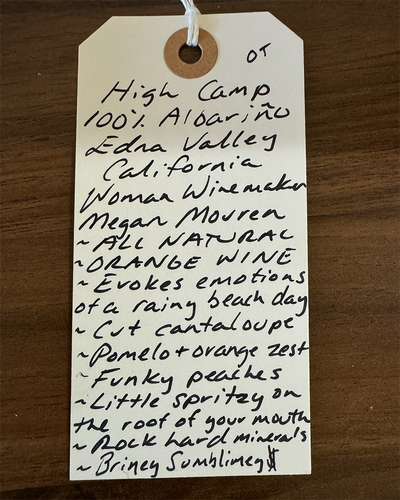 OT
High Camp
100% Albariño
Edna Valley
California
Woman Winemaker
Megan Mouren
~ ALL NATURAL
~ORANGE WINE
~ Evokes emotions
of a rainy beach day
~ Cut cantaloupe
~Pomelo + orange zest
~ Funky peaches
~Little spritzy on
the roof of your mouth
~ Rock hard minerals
~ Briney Sumblimey